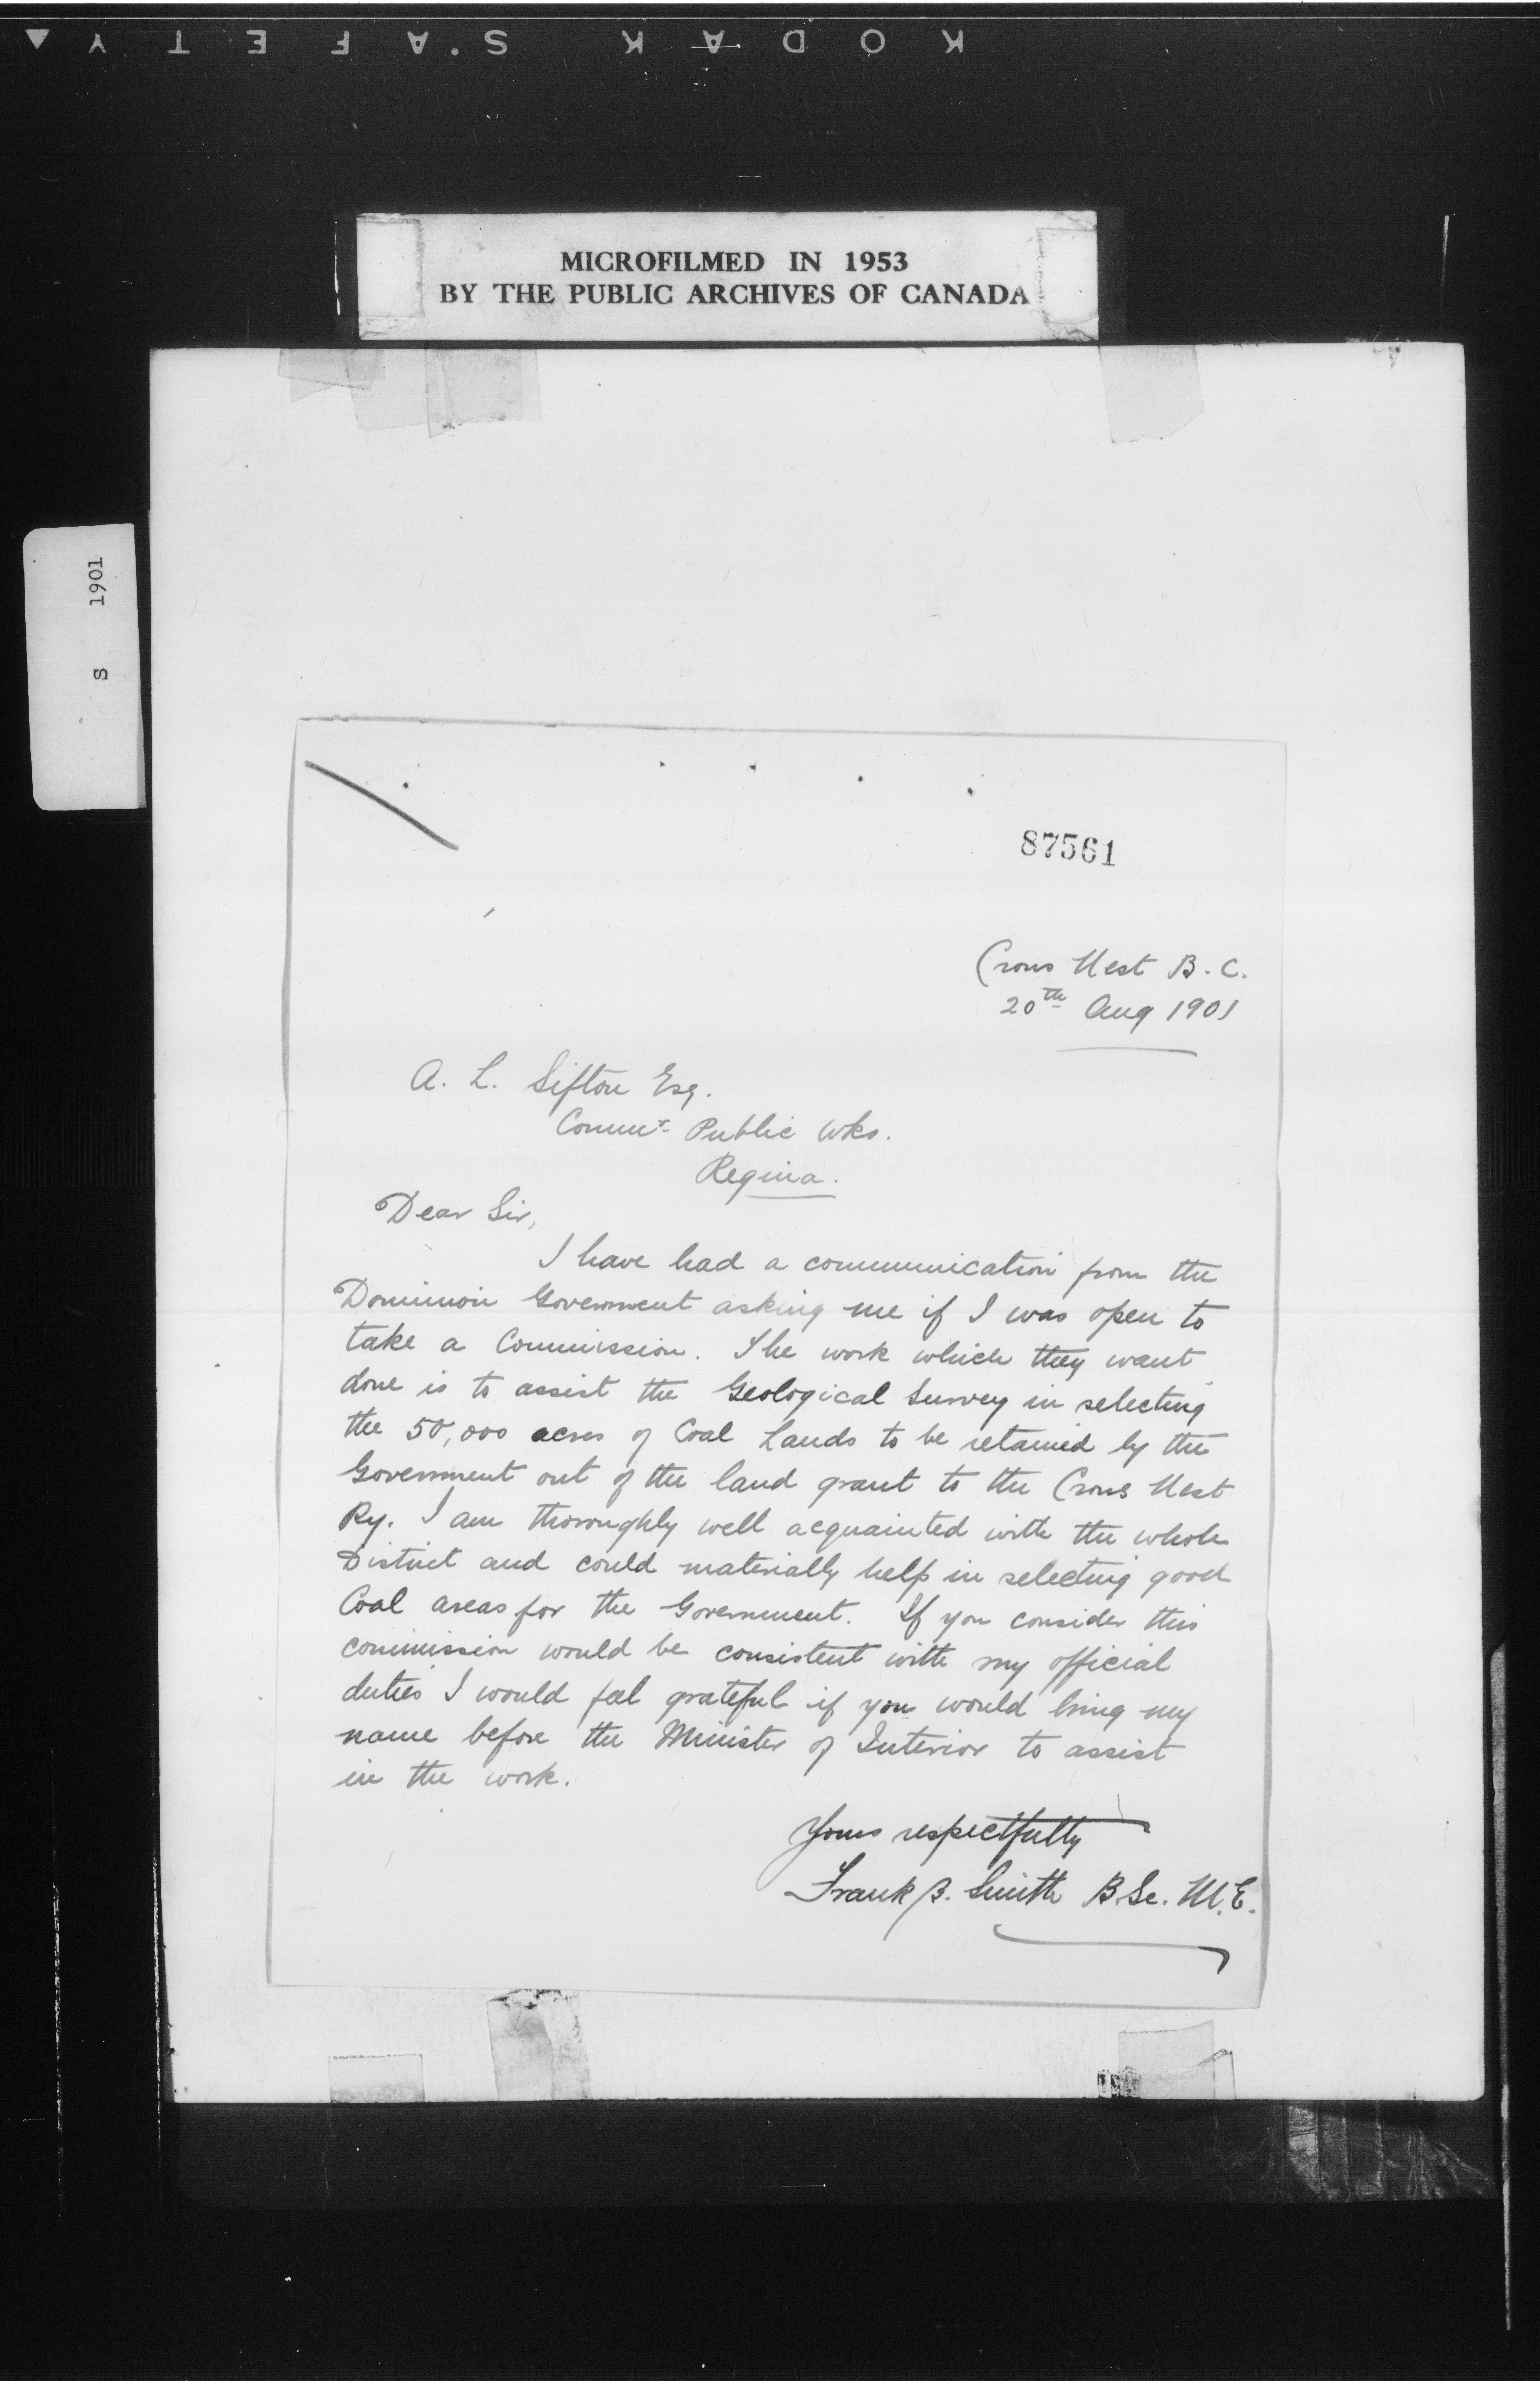 KODAK SAFETY
MICROFILMED IN 1953
BY THE PUBLIC ARCHIVES OF CANADA
S 1901
87561
Crows Nest B.C.
20th Aug 1901
A. L. Sifton Esq.
Commr Public Wks.
Regina.
Dear Sir,
I have had a communication from the
Dominion Government asking me if I was open to
take a Commission. The work which they want
done is to assist the Geological Survey in selecting
the 50,000 acres of Coal Lands to be retained by the
Government out of the land grant to the Crows Nest
Ry. I am thoroughly well acquainted with the whole
District and could materially help in selecting good
Coal areas for the Government. If you consider this
commission would be consistent with my official
duties I would feel grateful if you would bring my
name before the Minister of Interior to assist
in the work.
Yours respectfully
Frank B. Smith B.Sc. M.E.